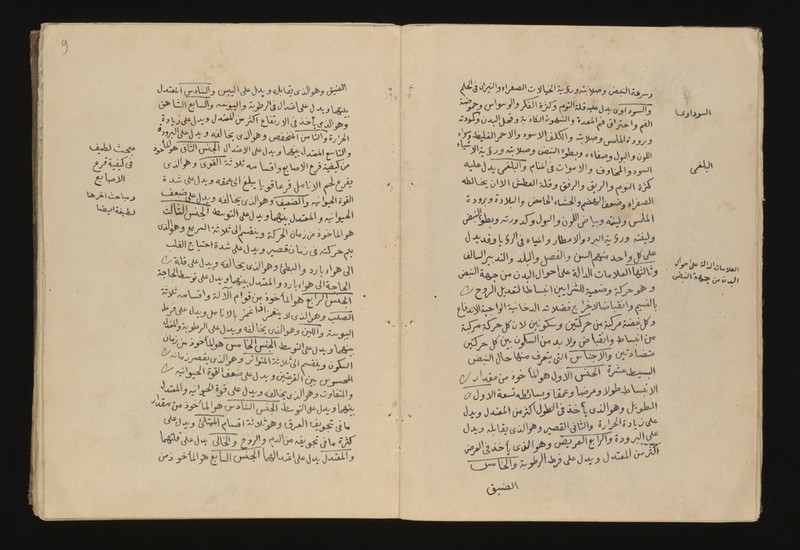 وسرعة النبض وصلابته ورؤية الخيالات الصفراء والنيران في الحلم
والسوداوى يدل عليه قلة النوم وكثرة الفكر والوسواس وحموضة
الفم واحتراق فم المعدة والشهوة الكاذبة وقحل البدن وكمودته
وبرودة الملمس وصلابته والكلف الاسود والاحمر الغليظ وكمداء
اللون والبول وصفاءه وبطوء النبض وصلابته ورؤية الاشياء
السود والمخاوف والاموات في المنام والبلغمى يدل عليه
كثرة النوم والريق والرفق وقلة العطش الا ان يخالطه
الصفراء وضعف الهضم والجشاء الحامض والبلادة وبرودة
الملمس ولينته وبياض اللون والبول وكدورته وبطوء النبض
ولينته ورؤية البرد والامطار والمياه في الرؤيا وقد يدل
على كل واحد منهم السن والفصل والبلد والتدبير السالف
وثالثها العلامات الدالة على احوال البدن من جهة النبض
وهو حركة وضعية للشرايين انبساطا لتعديل الروح
بالنسيم وانقباضا لاخراج فضلاته الدخانية الواجبة الاندفاع
وكل نبضة مركبة من حركتين وسكونين لان كل حركة مركبة
من انبساط وانقباض ولا بد من السكون بين كل حركتين
متضادتين والاجناس التى يتعرف منها حال النبض
البسيط عشرة الجنس الاول هو المأخوذ من مقدار
الانبساط طولا وعرضا وعمقا وبسائطه تسعة الاول
الطويل وهو الذى يأخذ في الطول أكثر من المعتدل ويدل
على زيادة الحرارة والثانى القصير وهو الذى يقابله ويدل
على البرودة والرابع العريض وهو الذى يأخذ في العرض
أكثر من المعتدل ويدل على فرط الرطوبة والخامس
الضيق
السوداوى
البلغى
العلامات الدالة على احوال
البدن من جهة النبض
9
الضيق وهو الذى يقابله ويدل على اليبس والسادس المعتدل
بينهما ويدل على اعتدال في الرطوبة واليبوسة والسابع الشاهق
وهو الذى يأخذ في الارتفاع أكثر من المعتدل ويدل على زيادة
الحرارة والثامن المنخفض وهو الذى يخالفه ويدل على البرودة
والتاسع المعتدل بينهما ويدل على الاعتدال الجنس الثانى هو المأخوذ
من كيفية قرع الاصابع واقسامه ثلاثة القوى وهو الذى
يقرع لحم الانامل قرعا قويا يبلغ الى عمقه ويدل على شدة
القوة الحيوانية والضعيف وهو الذى يخالفه ويدل على ضعف
الحيوانية والمعتدل بينهما ويدل على التوسط الجنس الثالث
هو الماخوذ من زمان الحركة وينقسم الى ثلاثة السريع وهو الذى
يتم حركته في زمان قصير ويدل على شدة احتياج القلب
الى هواء بارد والبطئ وهو الذى يخالفه ويدل على قلة
الحاجة الى هواء بارد والمعتدل بينهما ويدل على توسط الحاجة
الجنس الرابع هو المأخوذ من قوام الآلة واقسامه ثلاثة
الصلب وهو الذى لا ينغمز اذا غمز بالانامل ويدل على فرط
اليبوسة واللين وهو الذى يخالفه ويدل على الرطوبة والمعتدل
بينهما ويدل على التوسط الجنس الخامس هو المأخوذ من زمان
السكون وينقسم الى ثلاثة المتواتر وهو الذى يقصر زمانه
المحسوس بين القرعتين ويدل على ضعف القوة الحيوانية
والمتفاوت وهو الذى يخالفه ويدل على قوة الحيوانية والمعتدل
بينهما ويدل على التوسط الجنس السادس هو المأخوذ من مقدار
ما في تجويف العرق وهو ثلاثة اقسام الممتلئ ويدل على
كثرة ما في تجويفه من الدم والروح والخالى يدل على قلتهما
والمعتدل يدل على اعتدالهما الجنس السابع هو المأخوذ من
مبحث لطيف
في كيفية قرع
الاصابع
ومباحث اخر هنا
لطيفة ايضا